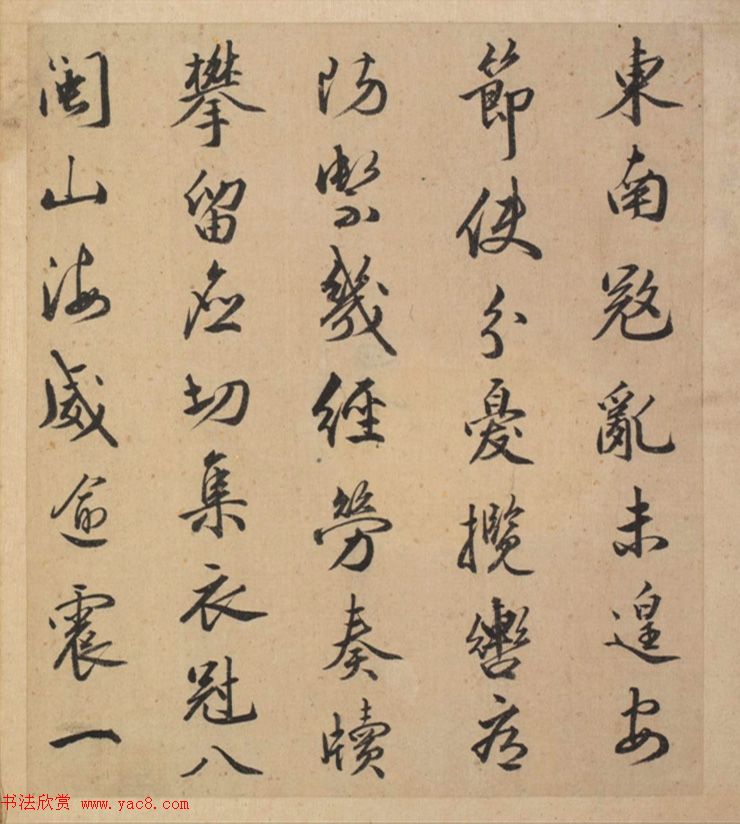 東南寇亂未遑安
節使分憂攬轡
防禦幾經勞奏牘
攀留應切集衣冠八
閩山海威逾震一
书法欣赏 www.yac8.com